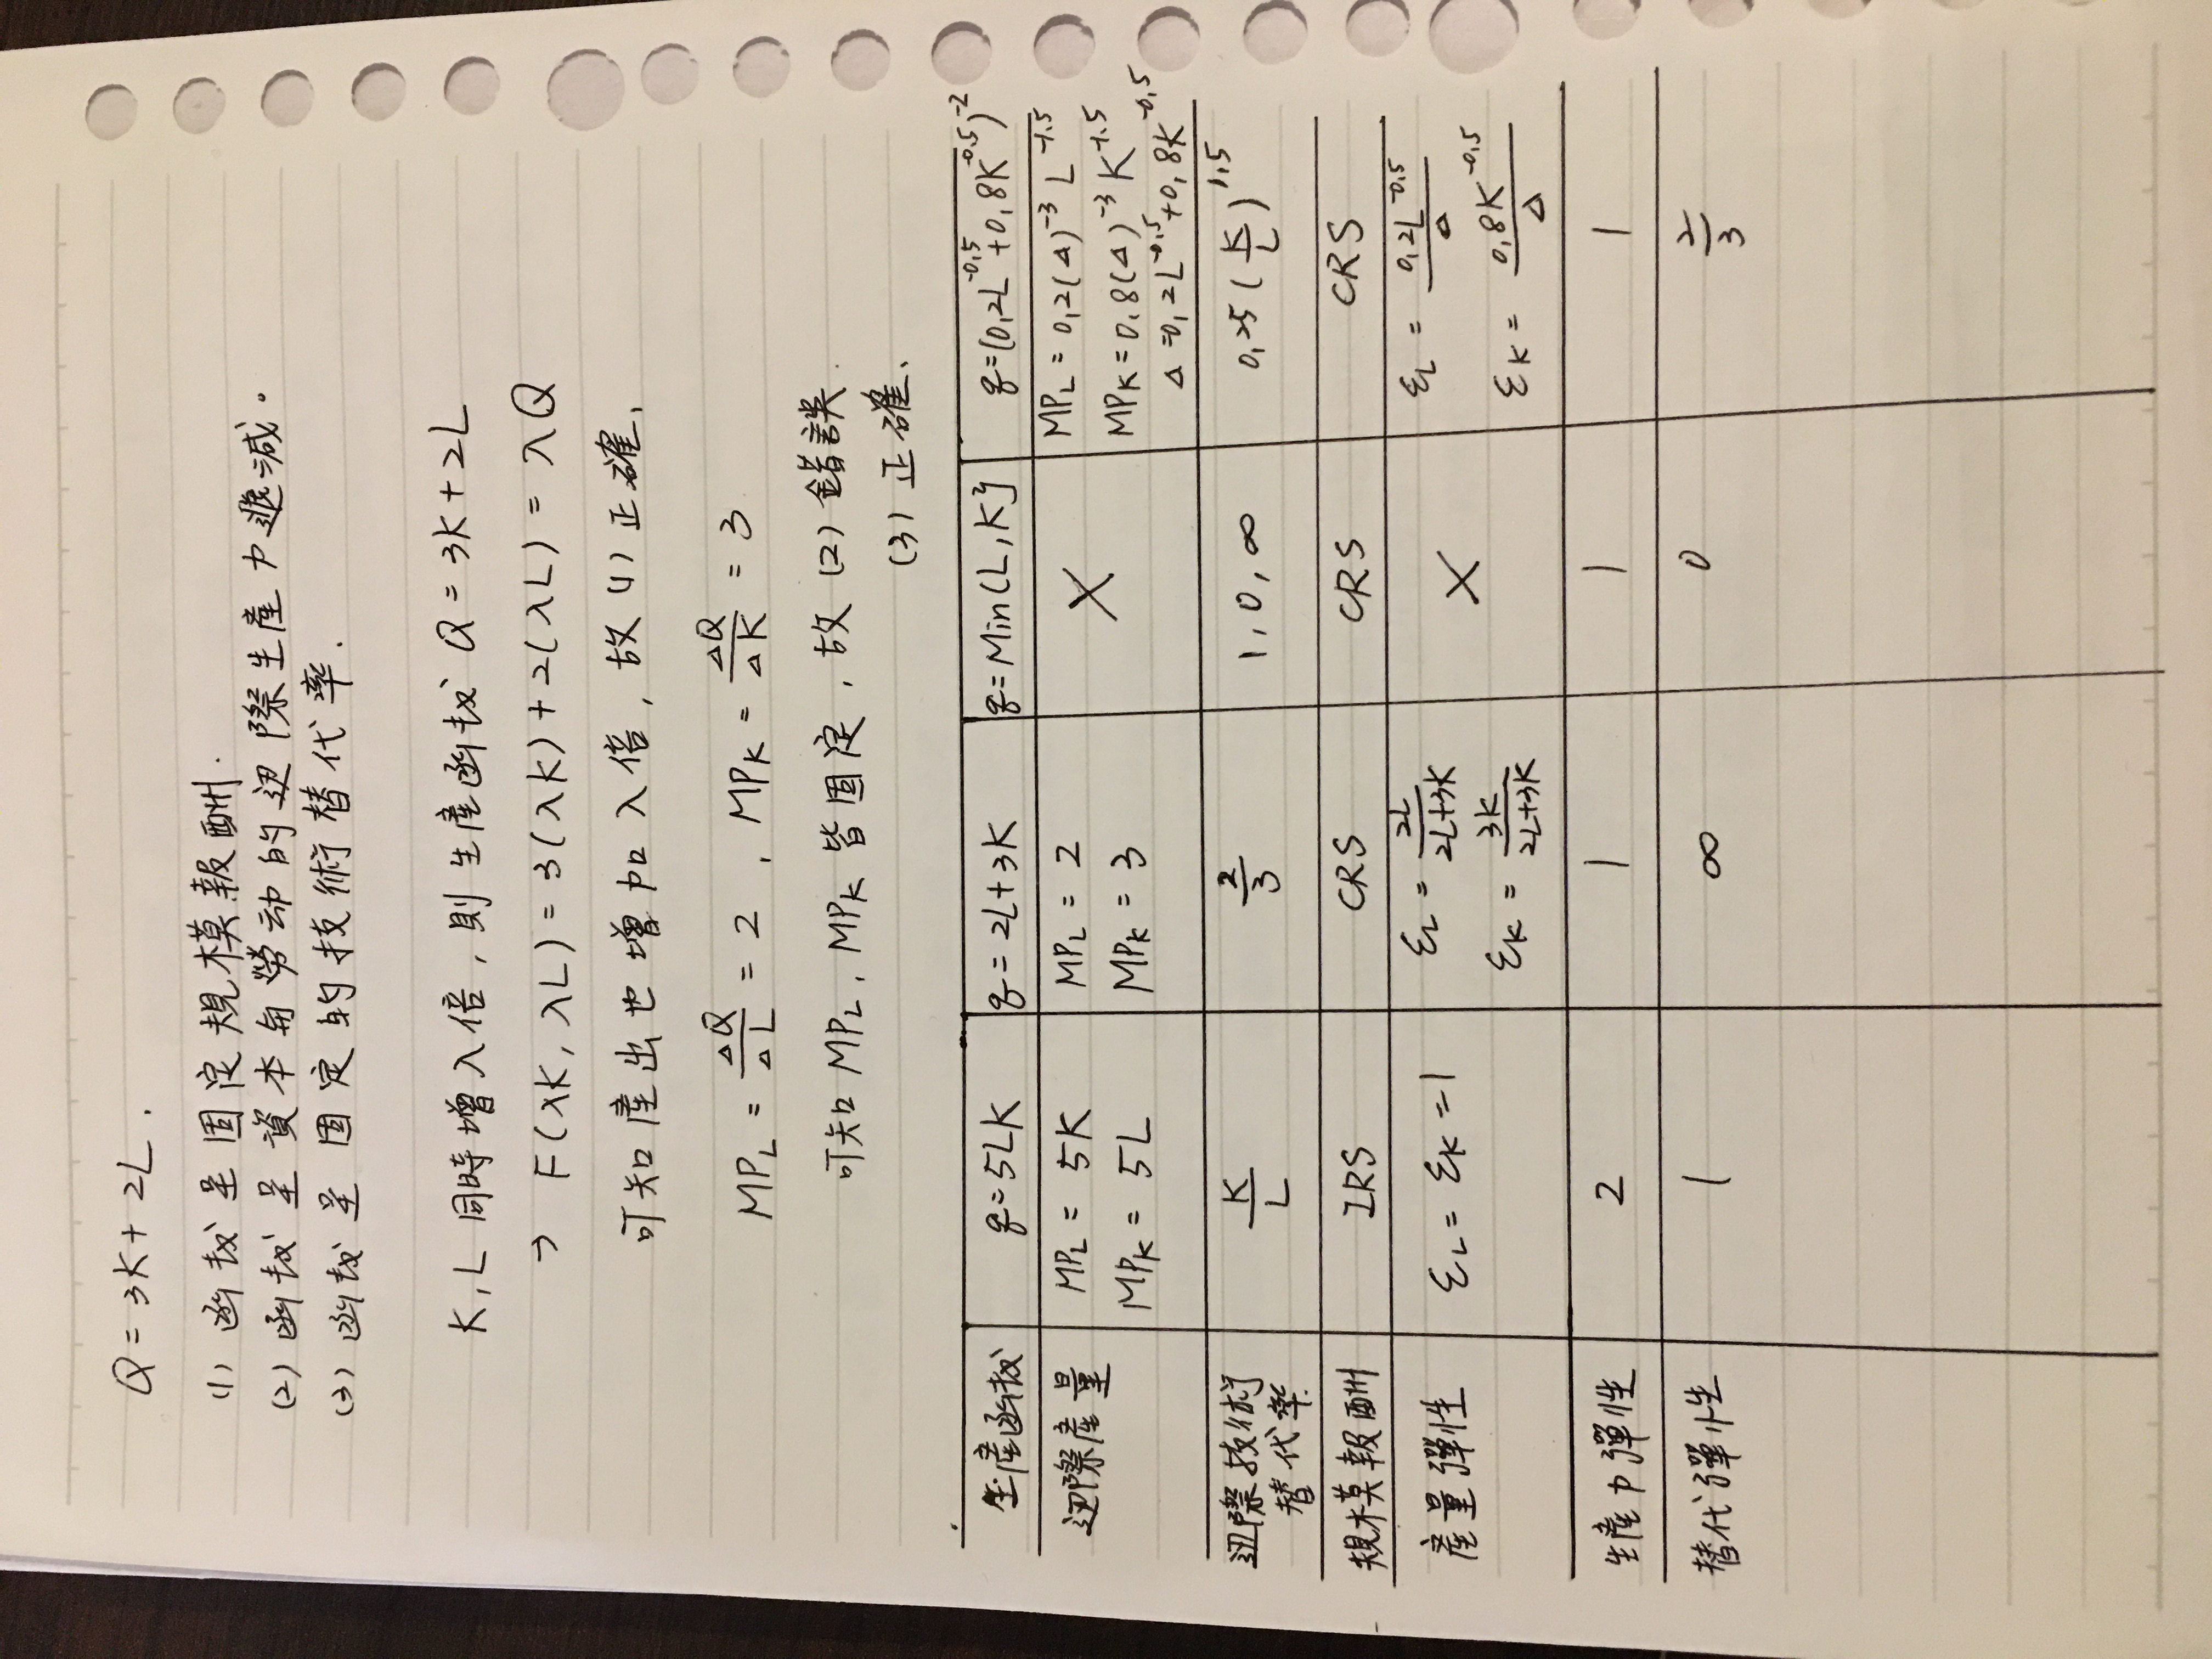 Q = 3K + 2L.
(1) 函数呈固定規模報酬.
(2) 函数呈資本與勞动的边際生產力遞減。
(3) 函数呈固定的技術替代率.
K, L 同時增λ倍, 則生產函数 Q = 3K + 2L
→ F(λK, λL) = 3(λK) + 2(λL) = λQ
可知產出也增加λ倍, 故(1)正確,
MP_L = ΔQ/ΔL = 2 , MP_K = ΔQ/ΔK = 3
可知 MP_L, MP_K 皆固定, 故(2)錯誤.
(3)正確.
生產函数 q=5LK q=2L+3K q=Min{L,K} q=(0.2L^-0.5+0.8K^-0.5)^-2
边際產量 MP_L = 5K MP_L = 2 X MP_L = 0.2(Δ)^-3 L^-1.5
MP_K = 5L MP_K = 3 MP_K = 0.8(Δ)^-3 K^-1.5
Δ=0.2L^-0.5+0.8K^-0.5
边際技術 K/L 2/3 1, 0, ∞ 0.25(K/L)^1.5
替代率
規模報酬 IRS CRS CRS CRS
產量彈性 ε_L = ε_K = 1 ε_L = 2L/(2L+3K) X ε_L = 0.2L^-0.5/Δ
ε_K = 3K/(2L+3K) ε_K = 0.8K^-0.5/Δ
生產力彈性 2 1 1 1
替代彈性 1 ∞ 0 2/3